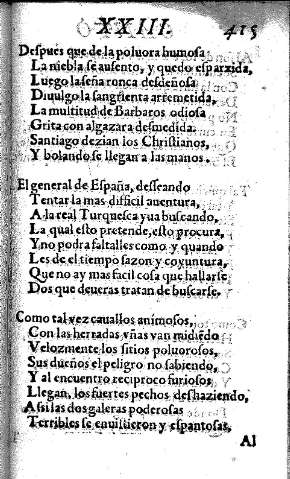 XXIII. 415
Despues que de la poluora humosa
La niebla se ausento, y quedo esparxida,
Luego la seña ronca desdeñosa
Diuulgo la sangrienta arremetida,
La multitud de Barbaros odiosa
Grita con algazara desmedida.
Santiago dezian los Christianos,
Y bolando se llegan a las manos.
El general de España, desseando
Tentar la mas dificil auentura,
A la real Turquesca yua buscando,
La qual esto pretende, esto procura,
Y no podra faltalles como y quando
Les de el tiempo sazon y coyuntura,
Que no ay mas facil cosa que hallarse
Dos que deueras tratan de buscarse.
Como tal vez cauallos animosos,
Con las herradas vñas van midiẽdo
Velozmente los sitios poluorosos,
Sus dueños el peligro no sabiendo,
Y al encuentro reciproco furiosos
Llegan, los fuertes pechos deshaziendo,
Assi las dos galeras poderosas
Terribles se enuistieron y espantosas,
Al